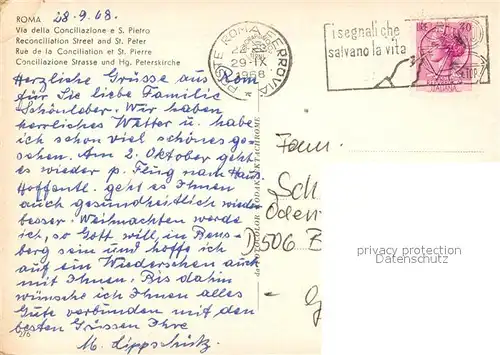 ROMA 28.9.68.
Via della Conciliazione e S. Pietro
Reconciliation Street and St. Peter
Rue de la Conciliation et St. Pierre
Conciliazione Strasse und Hg. Peterskirche
Herzliche Grüsse aus Rom
für Sie liebe Familie
Schönlober. Wir haben
herrliches Wetter u. habe
ich schon viel schönes ge-
sehen. Am 2. Oktober geht
es wieder p. Flug nach Haus.
Hoffentl. geht es Ihnen
auch gesundheitlich wieder
besser. Weihnachten werde
ich, so Gott will, in Bens-
berg sein und hoffe ich
auf ein Wiedersehen auch
mit Ihnen. Bis dahin
wünsche ich Ihnen alles
Gute verbunden mit den
besten Grüssen Ihre
M. Lippschütz
276
KODAK EKTACHROME
POSTE ROMA FERROVIA
29.IX
1968
i segnali che
salvano la vita
LIRE 40
ITALIANA
Fam.
Sch
Oden
D 506
privacy protection
for our customers